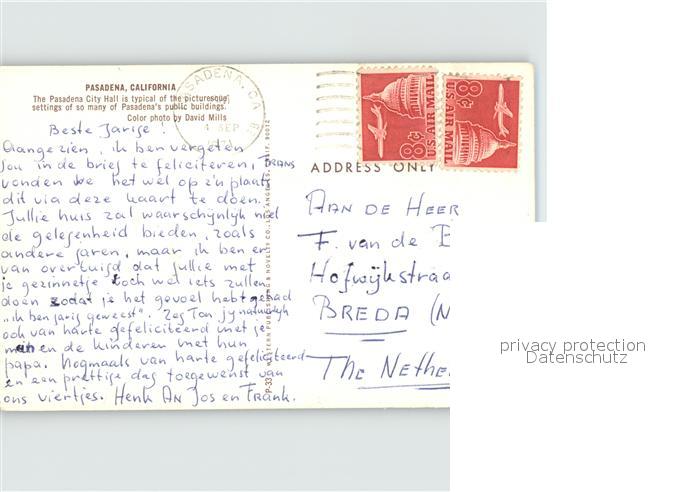 PASADENA, CALIFORNIA
The Pasadena City Hall is typical of the picturesque
settings of so many of Pasadena's public buildings.
Color photo by David Mills
PASADENA, CA
4 SEP
8¢ US AIR MAIL
8¢ US AIR MAIL
ADDRESS ONLY
Beste Jarige!
Aangezien, ik ben vergeten
jou in de brief te feliciteren, FRANS
vonden we het wel op z'n plaats
dit via deze kaart te doen.
Jullie huis zal waarschijnlijk niet
de gelegenheid bieden, zoals
andere jaren, maar ik ben er
van overtuigd dat jullie met
je gezinnetje toch wel iets zullen
doen zodat je het gevoel hebt gehad
"ik ben jarig geweest". Zeg Ton jij natuurlijk
ook van harte gefeliciteerd met je
man en de kinderen met hun
papa. Nogmaals van harte gefeliciteerd
en een prettige dag toegewenst van
ons viertjes. Henk An Jos en FRANK.
P-33
WESTERN PUBLISHING & NOVELTY CO., LOS ANGELES, CALIF. 90012
AAN DE HEER
F. van de
Hofwijkstraa
BREDA (N
THE NETHE
privacy protection
Datenschutz